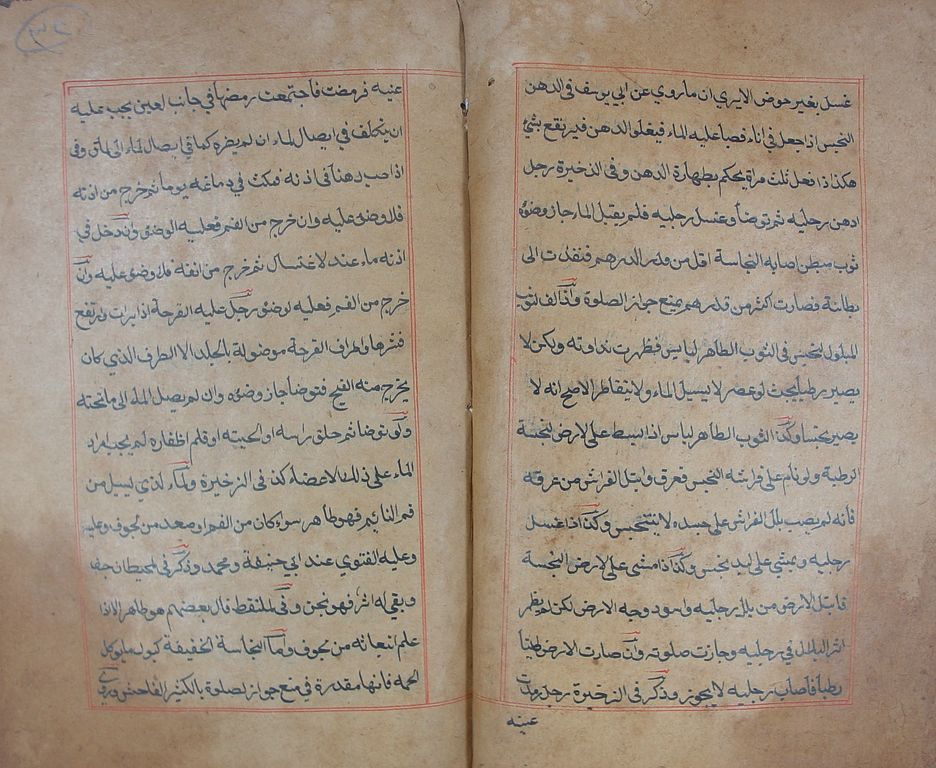 غسل بغير حوض الا يرى ان ما روي عن ابي يوسف فى الدهن
النجس اذا جعل فى اناء فصب عليه الماء فيغلوا الدهن فيرتفع بشئ
هكذا اذا فعل ثلث مراة يحكم بطهارة الدهن وفى الذخيرة رجل
ادهن رجليه ثم توضأ وغسل رجليه فلم يقبل الماء جاز وضوءه
ثوب مبطن اصابه النجاسة اقل من قدر الدرهم فنفذت الى
بطانة فصارت اكثر من قدرهم يمنع جواز الصلوة واذا لف الثوب
المبلول النجس فى الثوب الطاهر اليابس فظهرت نداوته ولكن لا
يصير رطبا بحيث لو عصر لا يسيل الماء ولا يتقاطر الاصح انه لا
يصير نجسا وكذا الثوب الطاهر اليابس اذا بسط على الارض النجسة
الرطبة ولو نام على فراشه النجس فعرق وابتل الفراش من عرقه
فانه لم يصب بلل الفراش على جسده لا يتنجس وكذا اذا غسل
رجليه ومشي على لبد نجس وكذا اذا مشى على الارض النجسة
فابتل الارض من بلل رجليه واسود وجه الارض لكن لم يظهر
اثر البلل فى رجليه وجازت صلوته وان صارت الارض طينا
رطبا فاصاب رجليه لا يجوز وذكر فى الزخيرة رجل رمدت
عينه
عنيه فرمضت فاجتمعت رمضها في جانب العين يجب عليه
ان يتكلف في ايصال الماء ان لم يضره كما في ايصال الماء الى الماق وفى
اذا صب دهنا فى اذنه فمكث في دماغه يوما ثم خرج من اذنه
فلا وضوء عليه وان خرج من الفم فعليه الوضوء وان دخل في
اذنه ماء عند الاغتسال ثم خرج من انفه فلا وضوء عليه وان
خرج من الفم فعليه الوضوء رجل عليه القرحة اذا برات وارتفع
قشرها واطراف القرحة موصولة بالجلد الا الطرف الذي كان
يخرج منه القيح فتوضا جاز وضوءه وان لم يصل الماء الى ما تحته
ولو توضا ثم حلق راسه او لحيته او قلم اظفاره لم يجب امرار
الماء على ذلك الاعضاء كذا فى الزخيرة والماء الذي يسيل من
فم النائم فهو طاهر سواء كان من الفم او صعد من الجوف وعليه
وعليه الفتوي عند ابي حنيفة ومحمد وذكر فى المحيط ان جف
وبقي له اثر فهو نجس وفى الملتقط قال بعضهم هو طاهر الا اذا
علم انبعاثه من الجوف واما النجاسة الخفيفة كبول ما يوكل
لحمه فانها مقدرة في منع جواز الصلوة بالكثير الفاحش وروي